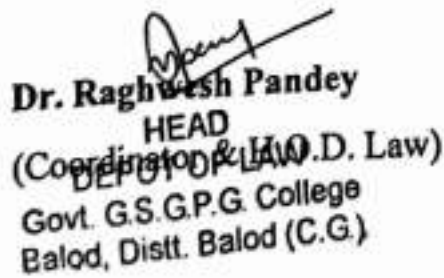 Dr. Raghwesh Pandey
HEAD
(Coordinator & H.O.D. Law)
DEPOT OF LAW
Govt. G.S.G.P.G. College
Balod, Distt. Balod (C.G.)